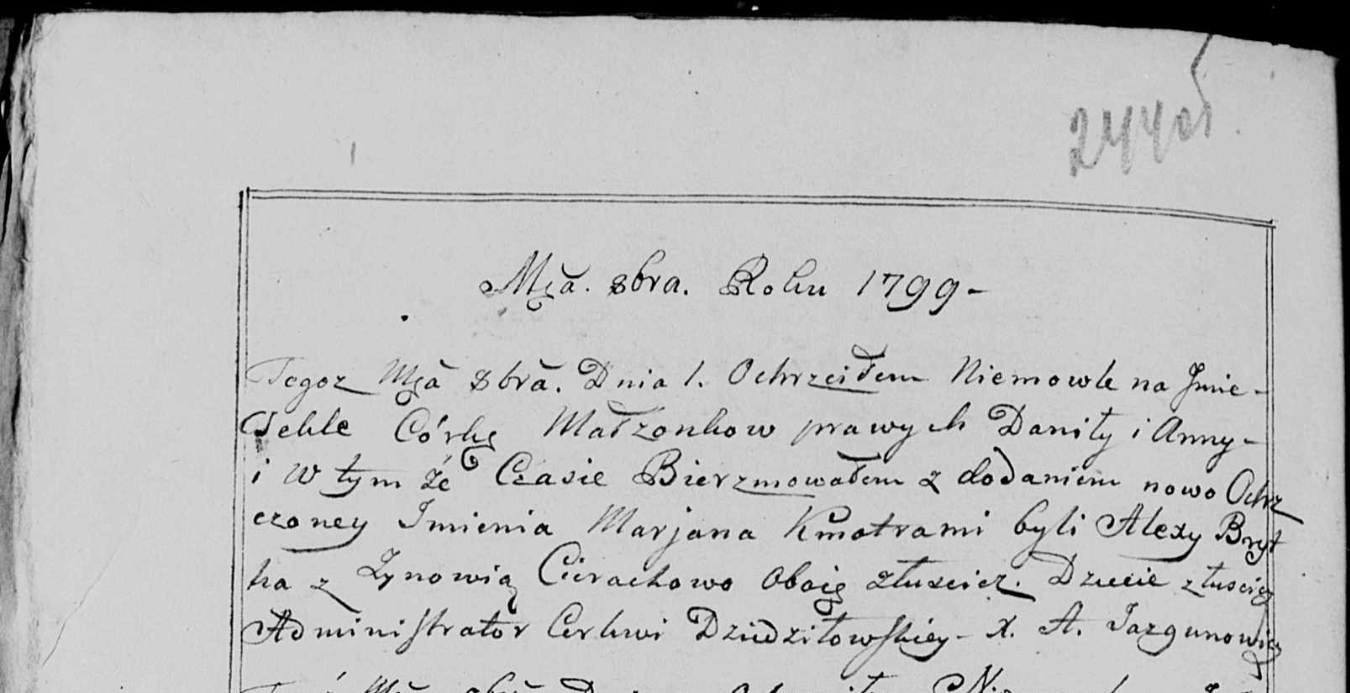 244об
Mca. 8bra. Roku 1799-
Tegoz Mca 8bra. Dnia 1. Ochrzciłem Niemowle na Jmie-
Tekle Córkę Małzonkow prawych Daniły i Anny-
i w tym że Czasie Bierzmowałem z dodaniem nowo Ochrz
czoney Jmienia Marjana Kmotrami byli Alexy Bryt
ka z Zynowią Cierachowo oboię z Dziecie z
Administrator Cerkwi Dziedziłowskiey- x. A. Jazgunowicz